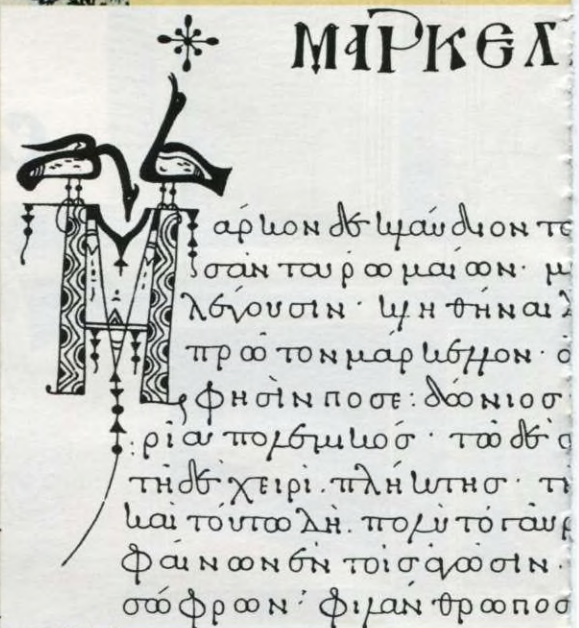 ΜΑΡΚΕΛ
Μάρκον δε κλαύδιον το
σαντα ρωμαίων· μ
λέγουσιν· κληθῆναι δ
πρῶτον μάρκελλον· ὁ
φησὶν ποσειδώνιος
ρίαι πολεμικός· τῶ δὲ σ
τῆ δὲ χειρὶ. πλήκτης· τῆ
καὶ τούτω δὴ. πολὺ τὸ γαῦρ
φαίνων ἐν τοῖς ἀγῶσιν·
σώφρων· φιλάνθρωπος